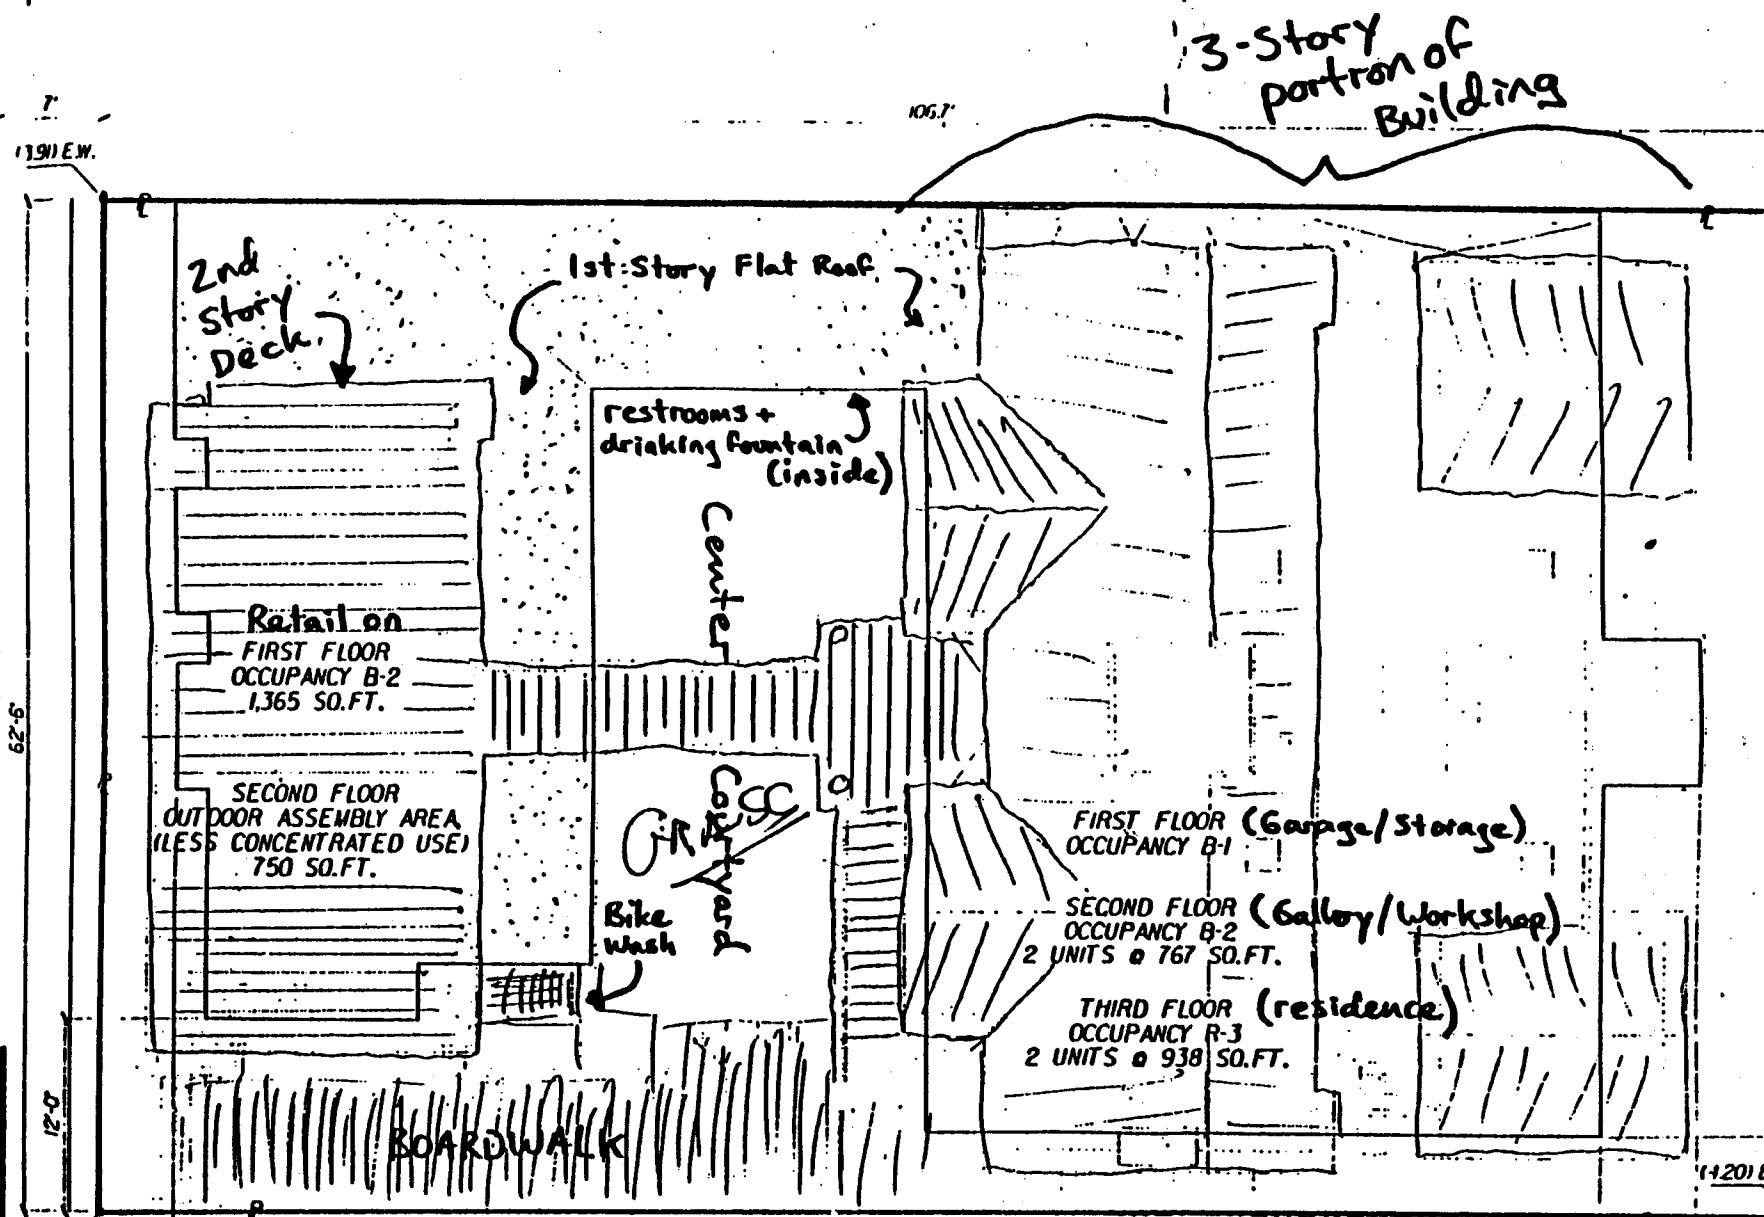 3-Story
portion of
Building
7'
106.7'
(1.91) E.W.
2nd
Story
Deck
1st-Story Flat Roof
restrooms +
drinking fountain
(inside)
Center
Courtyard
Retail on
FIRST FLOOR
OCCUPANCY B-2
1,365 SQ.FT.
62'-6"
SECOND FLOOR
OUTDOOR ASSEMBLY AREA
(LESS CONCENTRATED USE)
750 SQ.FT.
Bike
wash
FIRST FLOOR (Garage/Storage)
OCCUPANCY B-1
SECOND FLOOR (Gallery/Workshop)
OCCUPANCY B-2
2 UNITS @ 767 SQ.FT.
THIRD FLOOR (residence)
OCCUPANCY R-3
2 UNITS @ 938 SQ.FT.
12'-0"
BOARDWALK